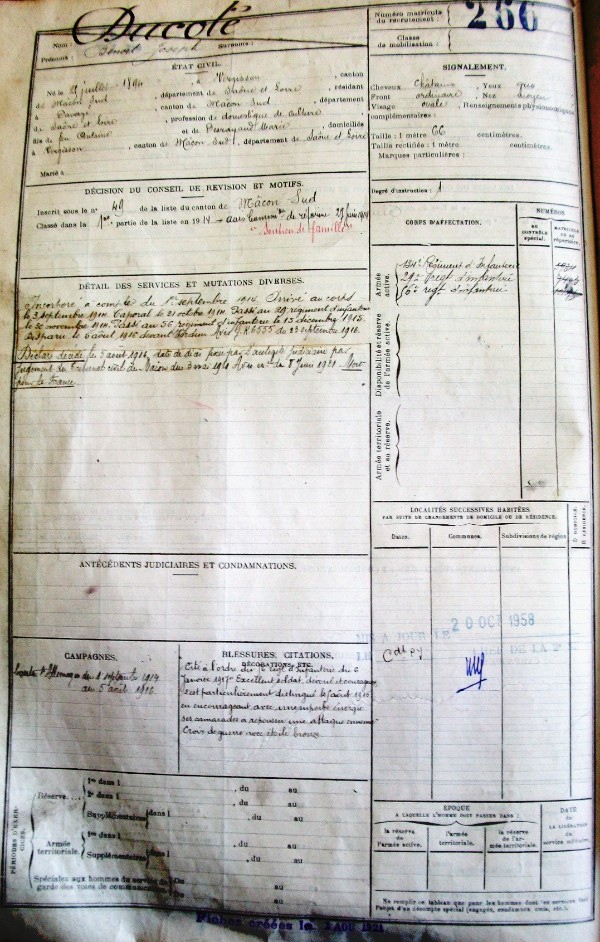 Ducoté
Nom :
Prénoms : Benoit Joseph Surnoms :
Numéro matricule du recrutement : 266
Classe de mobilisation :
ÉTAT CIVIL.
Né le juillet 1894, à Vergisson, canton
de Mâcon Sud, département de Saône et Loire, résidant
à Davayé, canton de Mâcon Sud, département
de Saône et Loire, profession de domestique de culture
fils de feu Antoine et de Perrayand Marie, domiciliés
à Vergisson, canton de Mâcon Sud, département de Saône et Loire
Marié à
SIGNALEMENT.
Cheveux châtains, Yeux gris
Front ordinaire, Nez moyen
Visage ovale, Renseignements physionomiques
complémentaires :
Taille : 1 mètre 66 centimètres.
Taille rectifiée : 1 mètre centimètres.
Marques particulières :
Degré d'instruction :
DÉCISION DU CONSEIL DE REVISION ET MOTIFS.
Inscrit sous le n° 49 de la liste du canton de Mâcon Sud
Classé dans la 1re partie de la liste en 1914
Soutien de famille
DÉTAIL DES SERVICES ET MUTATIONS DIVERSES.
Incorporé à compter du 1er septembre 1914. Arrivé au corps
le 3 septembre 1914. Caporal le 21 octobre 1914. Passé au 29 régiment d'infanterie
le 30 novembre 1914. Passé au 56 régiment d'infanterie le 15 décembre 1915.
Disparu le 5 avril 1916 devant Verdun Avis 6555 du 23 septembre 1916.
Déclaré décédé le 5 avril 1916, date de fixée par l'autorité judiciaire par
jugement du Tribunal civil de Mâcon du 3 mai 1921 Avis du 8 juin 1921 Mort
pour la France
CORPS D'AFFECTATION.
NUMÉROS
AU CONTRÔLE SPÉCIAL.
MATRICULE OU AU RÉPERTOIRE.
Armée active.
134e Régiment d'Infanterie
29e regt d'infanterie
56e regt d'infanterie
Disponibilité et réserve de l'armée active.
Armée territoriale et sa réserve.
LOCALITÉS SUCCESSIVES HABITÉES
PAR SUITE DE CHANGEMENTS DE DOMICILE OU DE RÉSIDENCE.
Dates.
Communes.
Subdivisions de région.
D DOMICILE.
R RÉSIDENCE.
MIS A JOUR LE 20 OCT 1958
ANTÉCÉDENTS JUDICIAIRES ET CONDAMNATIONS.
CAMPAGNES.
Contre l'Allemagne du 1 septembre 1914
au 5 avril 1916
BLESSURES, CITATIONS,
DÉCORATIONS, ETC.
Cité à l'ordre du regt d'infanterie du 6
Janvier 1917 Excellent soldat, dévoué et courageux
s'est particulièrement distingué le
en encourageant avec une superbe énergie
ses camarades à repousser une attaque ennemie
Croix de guerre avec étoile bronze
PÉRIODES D'EXERCICES.
Réserve....
1re dans l , du au
2e dans l , du au
Supplémentaires dans l , du au
Armée territoriale.
1re dans l , du au
Supplémentaires dans l , du au
Spéciales aux hommes du service de garde des voies de communication.
Du au
Du au
ÉPOQUE
A LAQUELLE L'HOMME DOIT PASSER DANS :
la réserve de l'armée active.
l'armée territoriale.
la réserve de l'armée territoriale.
DATE
DE LA LIBÉRATION DU service militaire.
Ne remplir ce tableau que pour les hommes dont les services font
l'objet d'un décompte spécial (engagés, condamnés, omis, etc.).
Fiches créées le AOU 1921